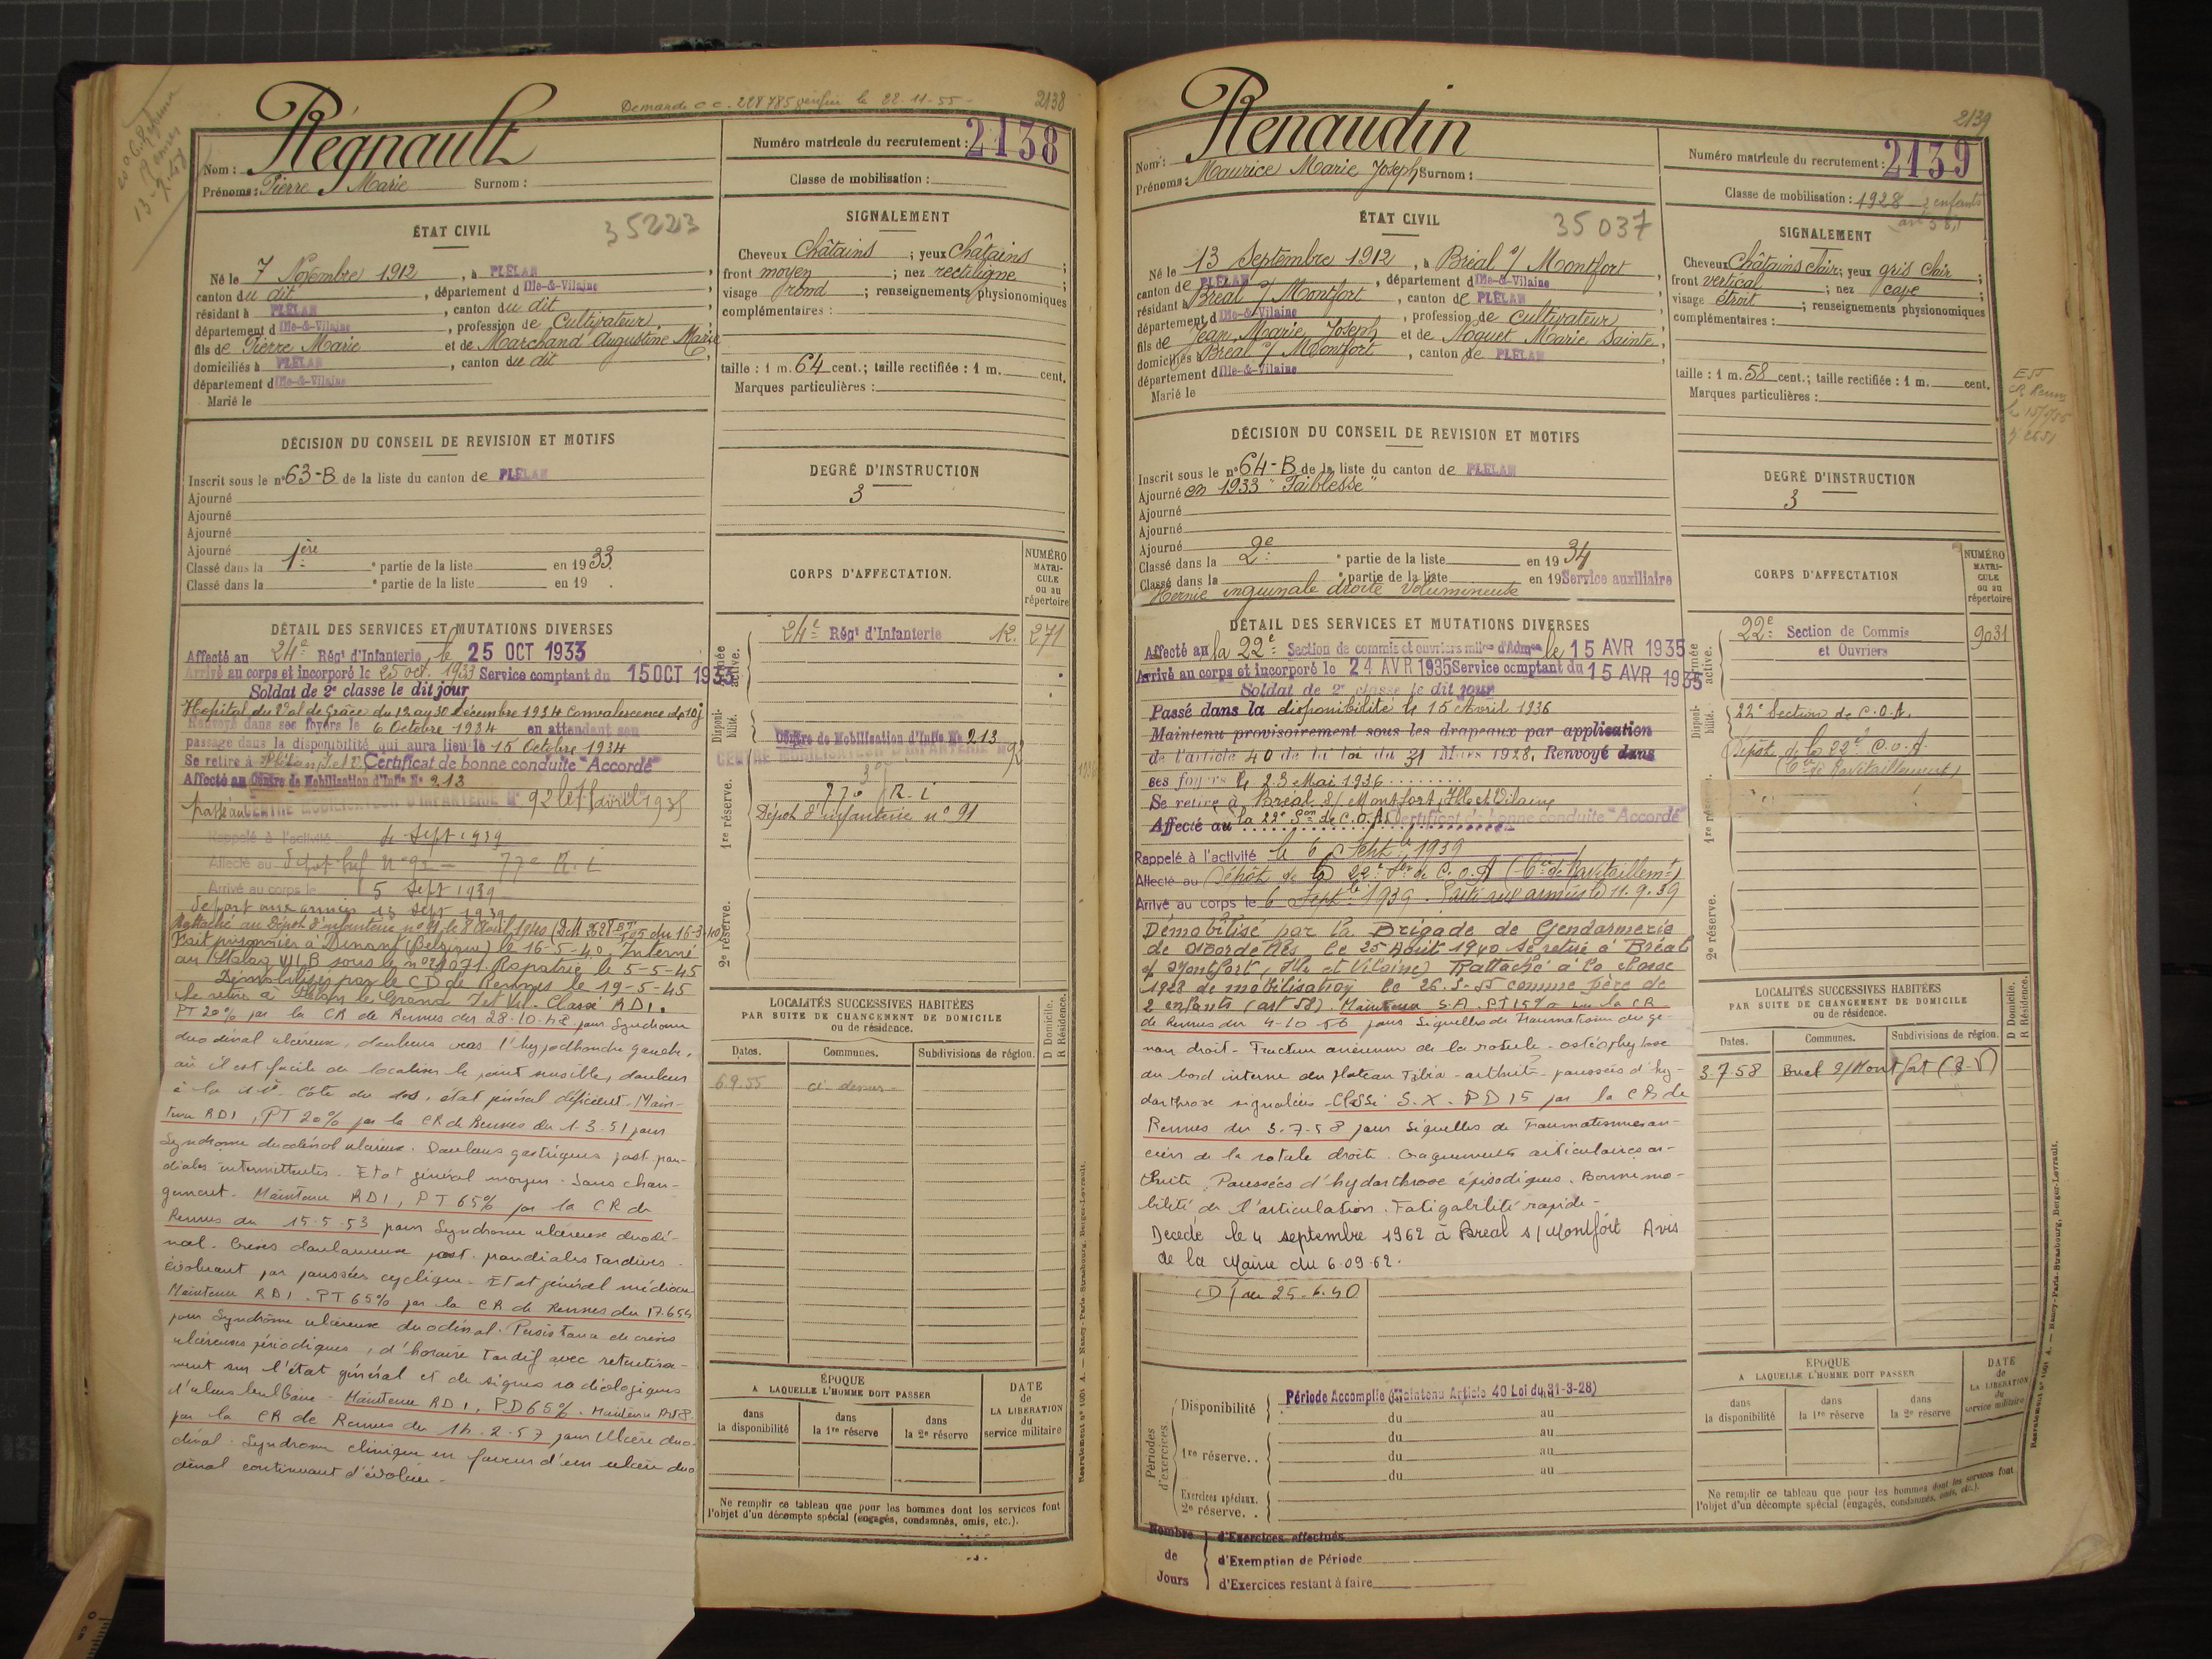 Demande c.c. 228785 vérifié le 22-11-55
2138
Régnault
Nom :
Prénoms : Pierre Marie Surnom :
Numéro matricule du recrutement : 2138
Classe de mobilisation :
ÉTAT CIVIL
35223
Né le 7 Novembre 1912, à PLÉLAN,
canton du dit, département d'Ille-&-Vilaine
résidant à PLÉLAN, canton du dit
département d'Ille-&-Vilaine, profession de Cultivateur,
fils de Pierre Marie et de Marchand Augustine Marie
domiciliés à PLÉLAN, canton du dit
département d'Ille-&-Vilaine
Marié le
SIGNALEMENT
Cheveux Châtains ; yeux Châtains ;
front moyen ; nez rectiligne
visage rond ; renseignements physionomiques
complémentaires :
taille : 1 m. 64 cent.; taille rectifiée : 1 m. cent.
Marques particulières :
DÉCISION DU CONSEIL DE REVISION ET MOTIFS
Inscrit sous le n° 63-B de la liste du canton de PLÉLAN
Ajourné
Ajourné
Ajourné
Ajourné
Classé dans la 1ère partie de la liste en 1933.
Classé dans la partie de la liste en 19 .
DEGRÉ D'INSTRUCTION
3
DÉTAIL DES SERVICES ET MUTATIONS DIVERSES
Affecté au 24e Régt d'Infanterie, le 25 OCT 1933
Arrivé au corps et incorporé le 25 oct. 1933 Service comptant du 15 OCT 1933
Soldat de 2e classe le dit jour
Hôpital du Val de Grâce du 12 au 30 décembre 1934 Convalescence de 10 j
Renvoyé dans ses foyers le 6 Octobre 1934 en attendant son
passage dans la disponibilité qui aura lieu le 15 Octobre 1934
Se retire à Plélan I. et V. Certificat de bonne conduite "Accordé"
Affecté au Centre de Mobilisation d'Infie No 213
passé au CENTRE MOBILISATEUR D'INFANTERIE N° 92 le 1 avril 1935
Rappelé à l'activité le Sept 1939
Affecté au Dépôt Inf n° 92 – 77e R.i
Arrivé au corps le 5 Sept 1939
départ aux armées 13 Sept 1939
Rattaché au Dépôt d'infanterie n° 91 le 8 Avril 1940
Fait prisonnier à Dinant (Belgique) le 16-5-40. Interné
au Stalag VII B sous le n° 21071. Rapatrié le 5-5-45
Démobilisé par le CD de Rennes le 19-5-45
Se retire à Plélan le Grand I et Vil. Classé RD1.
PT 20% par la CR de Rennes du 28-10-48 pour Syndrome
duodénal ulcéreux, douleurs vers l'hypochondre gauche,
où il est facile de localiser le point sensible, douleur
à la 11e côte du dos, état général déficient. Main-
tenu RD1, PT 20% par la CR de Rennes du 1-3-51 pour
Syndrome duodénal ulcéreux. Douleurs gastriques post pran-
diales intermittentes. Etat général moyen. Sans chan-
gement. Maintenu RD1, PT 65% par la CR de
Rennes du 15-5-53 pour Syndrome ulcéreux duodé-
nal. Crises douloureuses post. prandiales tardives.
évoluant par poussées cycliques. Etat général médiocre
Maintenu RD1. PT 65% par la CR de Rennes du 17.6.55
pour Syndrôme ulcéreux duodénal. Persistance de crises
ulcéreuses périodiques, d'horaire Tardif avec retentisse-
ment sur l'état général et de signes radiologiques
d'ulcus bulbaire. Maintenu RD1, PD 65%. Maintenu
par la CR de Rennes du 14.2.57 pour Ulcère duo-
dénal. Syndrome clinique en faveur d'un ulcère duo
dénal continuant d'évoluer.
CORPS D'AFFECTATION.
NUMÉRO MATRI-CULE ou au répertoire
Armée active.
24e Régt d'Infanterie 12. 271
Disponi-bilité.
Centre de Mobilisation d'Infie No 213
CENTRE MOBILISATEUR D'INFANTERIE N° 92
1re réserve.
77e R.i
Dépôt d'infanterie n° 91
2e réserve.
LOCALITÉS SUCCESSIVES HABITÉES
PAR SUITE DE CHANGEMENT DE DOMICILE
ou de résidence.
D Domicile. R Résidence.
Dates. Communes. Subdivisions de région.
6.9.55 ci-dessus
ÉPOQUE
A LAQUELLE L'HOMME DOIT PASSER
DATE de LA LIBÉRATION du service militaire
dans la disponibilité
dans la 1re réserve
dans la 2e réserve
Ne remplir ce tableau que pour les hommes dont les services font
l'objet d'un décompte spécial (engagés, condamnés, omis, etc.).
Recrutement n° 1051 A. — Nancy-Paris-Strasbourg, Berger-Levrault.
2139
Renaudin
Nom :
Prénoms : Maurice Marie Joseph Surnom :
Numéro matricule du recrutement : 2139
Classe de mobilisation : 1928 - 2 enfants
art 58
ÉTAT CIVIL
35037
Né le 13 Septembre 1912, à Bréal s/ Montfort
canton de PLÉLAN, département d'Ille-&-Vilaine
résidant à Bréal s/ Montfort, canton de PLÉLAN
département d'Ille-&-Vilaine, profession de Cultivateur
fils de Jean Marie Joseph et de Noguet Marie Sainte,
domiciliés à Bréal s/ Montfort, canton de PLÉLAN
département d'Ille-&-Vilaine
Marié le
SIGNALEMENT
Cheveux Châtains clair; yeux gris clair ;
front vertical ; nez cave
visage étroit ; renseignements physionomiques
complémentaires :
taille : 1 m. 58 cent.; taille rectifiée : 1 m. cent.
Marques particulières :
DÉCISION DU CONSEIL DE REVISION ET MOTIFS
Inscrit sous le n° 64-B de la liste du canton de PLÉLAN
Ajourné en 1933 "Faiblesse"
Ajourné
Ajourné
Ajourné
Classé dans la 2e partie de la liste en 1934
Classé dans la partie de la liste en 19 Service auxiliaire
Hernie inguinale droite volumineuse
DEGRÉ D'INSTRUCTION
3
DÉTAIL DES SERVICES ET MUTATIONS DIVERSES
Affecté au la 22e Section de commis et ouvriers mlres d'Admon le 15 AVR 1935
Arrivé au corps et incorporé le 24 AVR 1935 Service comptant du 15 AVR 1935
Soldat de 2e classe le dit jour
Passé dans la disponibilité le 15 Avril 1936
Maintenu provisoirement sous les drapeaux par application
de l'article 40 de la loi du 31 Mars 1928, Renvoyé dans
ses foyers le 23 Mai 1936
Se retire à Bréal s/ Montfort, Ille et Vilaine
Affecté au la 22e Son de C.O.A. Certificat de bonne conduite "Accordé"
Rappelé à l'activité le 6 Septbre 1939
Affecté au Dépôt de la 22e Son de C.O.A (Cie de Ravitaillemt)
Arrivé au corps le 6 Septbre 1939. Parti aux armées le 11.9.39
Démobilisé par la Brigade de Gendarmerie
de le 25 Août 1940 se retire à Bréal
s/ Montfort, Ille et Vilaine) Rattaché à la classe
1928 de mobilisation le 26.5-55 comme père de
2 enfants (art 58). Maintenu S.A. PT 15% par la CR
de Rennes du 4-10-56 pour Séquelles de Traumatisme du ge-
nou droit - Fracture ancienne de la rotule - ostéophytose
du bord interne du plateau Tibia - arthrite - poussées d'hy-
darthrose signalées Classé S.X. PD 15 par la CR de
Rennes du 3-7-58 pour Séquelles de Traumatismes an-
ciens de la rotule droite. Craquements articulaires ar-
thrite, Poussées d'hydarthrose épisodiques. Bonne mo-
bilité de l'articulation. Fatigabilité rapide.
Décédé le 4 septembre 1962 à Bréal s/ Montfort Avis
de la Mairie du 6.09.62.
25-6.40
CORPS D'AFFECTATION
NUMÉRO MATRI-CULE ou au répertoire
Armée active.
22e Section de Commis et Ouvriers 9031
Disponi-bilité.
22e Section de C.O.A.
Dépôt de la 22e C.O.A.
(Cie de Ravitaillement)
1re réserve.
2e réserve.
LOCALITÉS SUCCESSIVES HABITÉES
PAR SUITE DE CHANGEMENT DE DOMICILE
ou de résidence.
D Domicile. R Résidence.
Dates. Communes. Subdivisions de région.
3.7.58 Breal s/ Montfort
Périodes d'exercices
Disponibilité Période Accomplie (Maintenu Article 40 Loi du 31-3-28)
du au
du au
1re réserve.. du au
du au
Exercices spéciaux. 2e réserve. .
ÉPOQUE
A LAQUELLE L'HOMME DOIT PASSER
DATE de LA LIBÉRATION du service militaire
dans la disponibilité
dans la 1re réserve
dans la 2e réserve
Ne remplir ce tableau que pour les hommes dont les services font
l'objet d'un décompte spécial (engagés, condamnés, omis, etc.).
Nombre de Jours
d'Exercices effectués
d'Exemption de Période
d'Exercices restant à faire
Recrutement n° 1051 A. — Nancy-Paris-Strasbourg, Berger-Levrault.